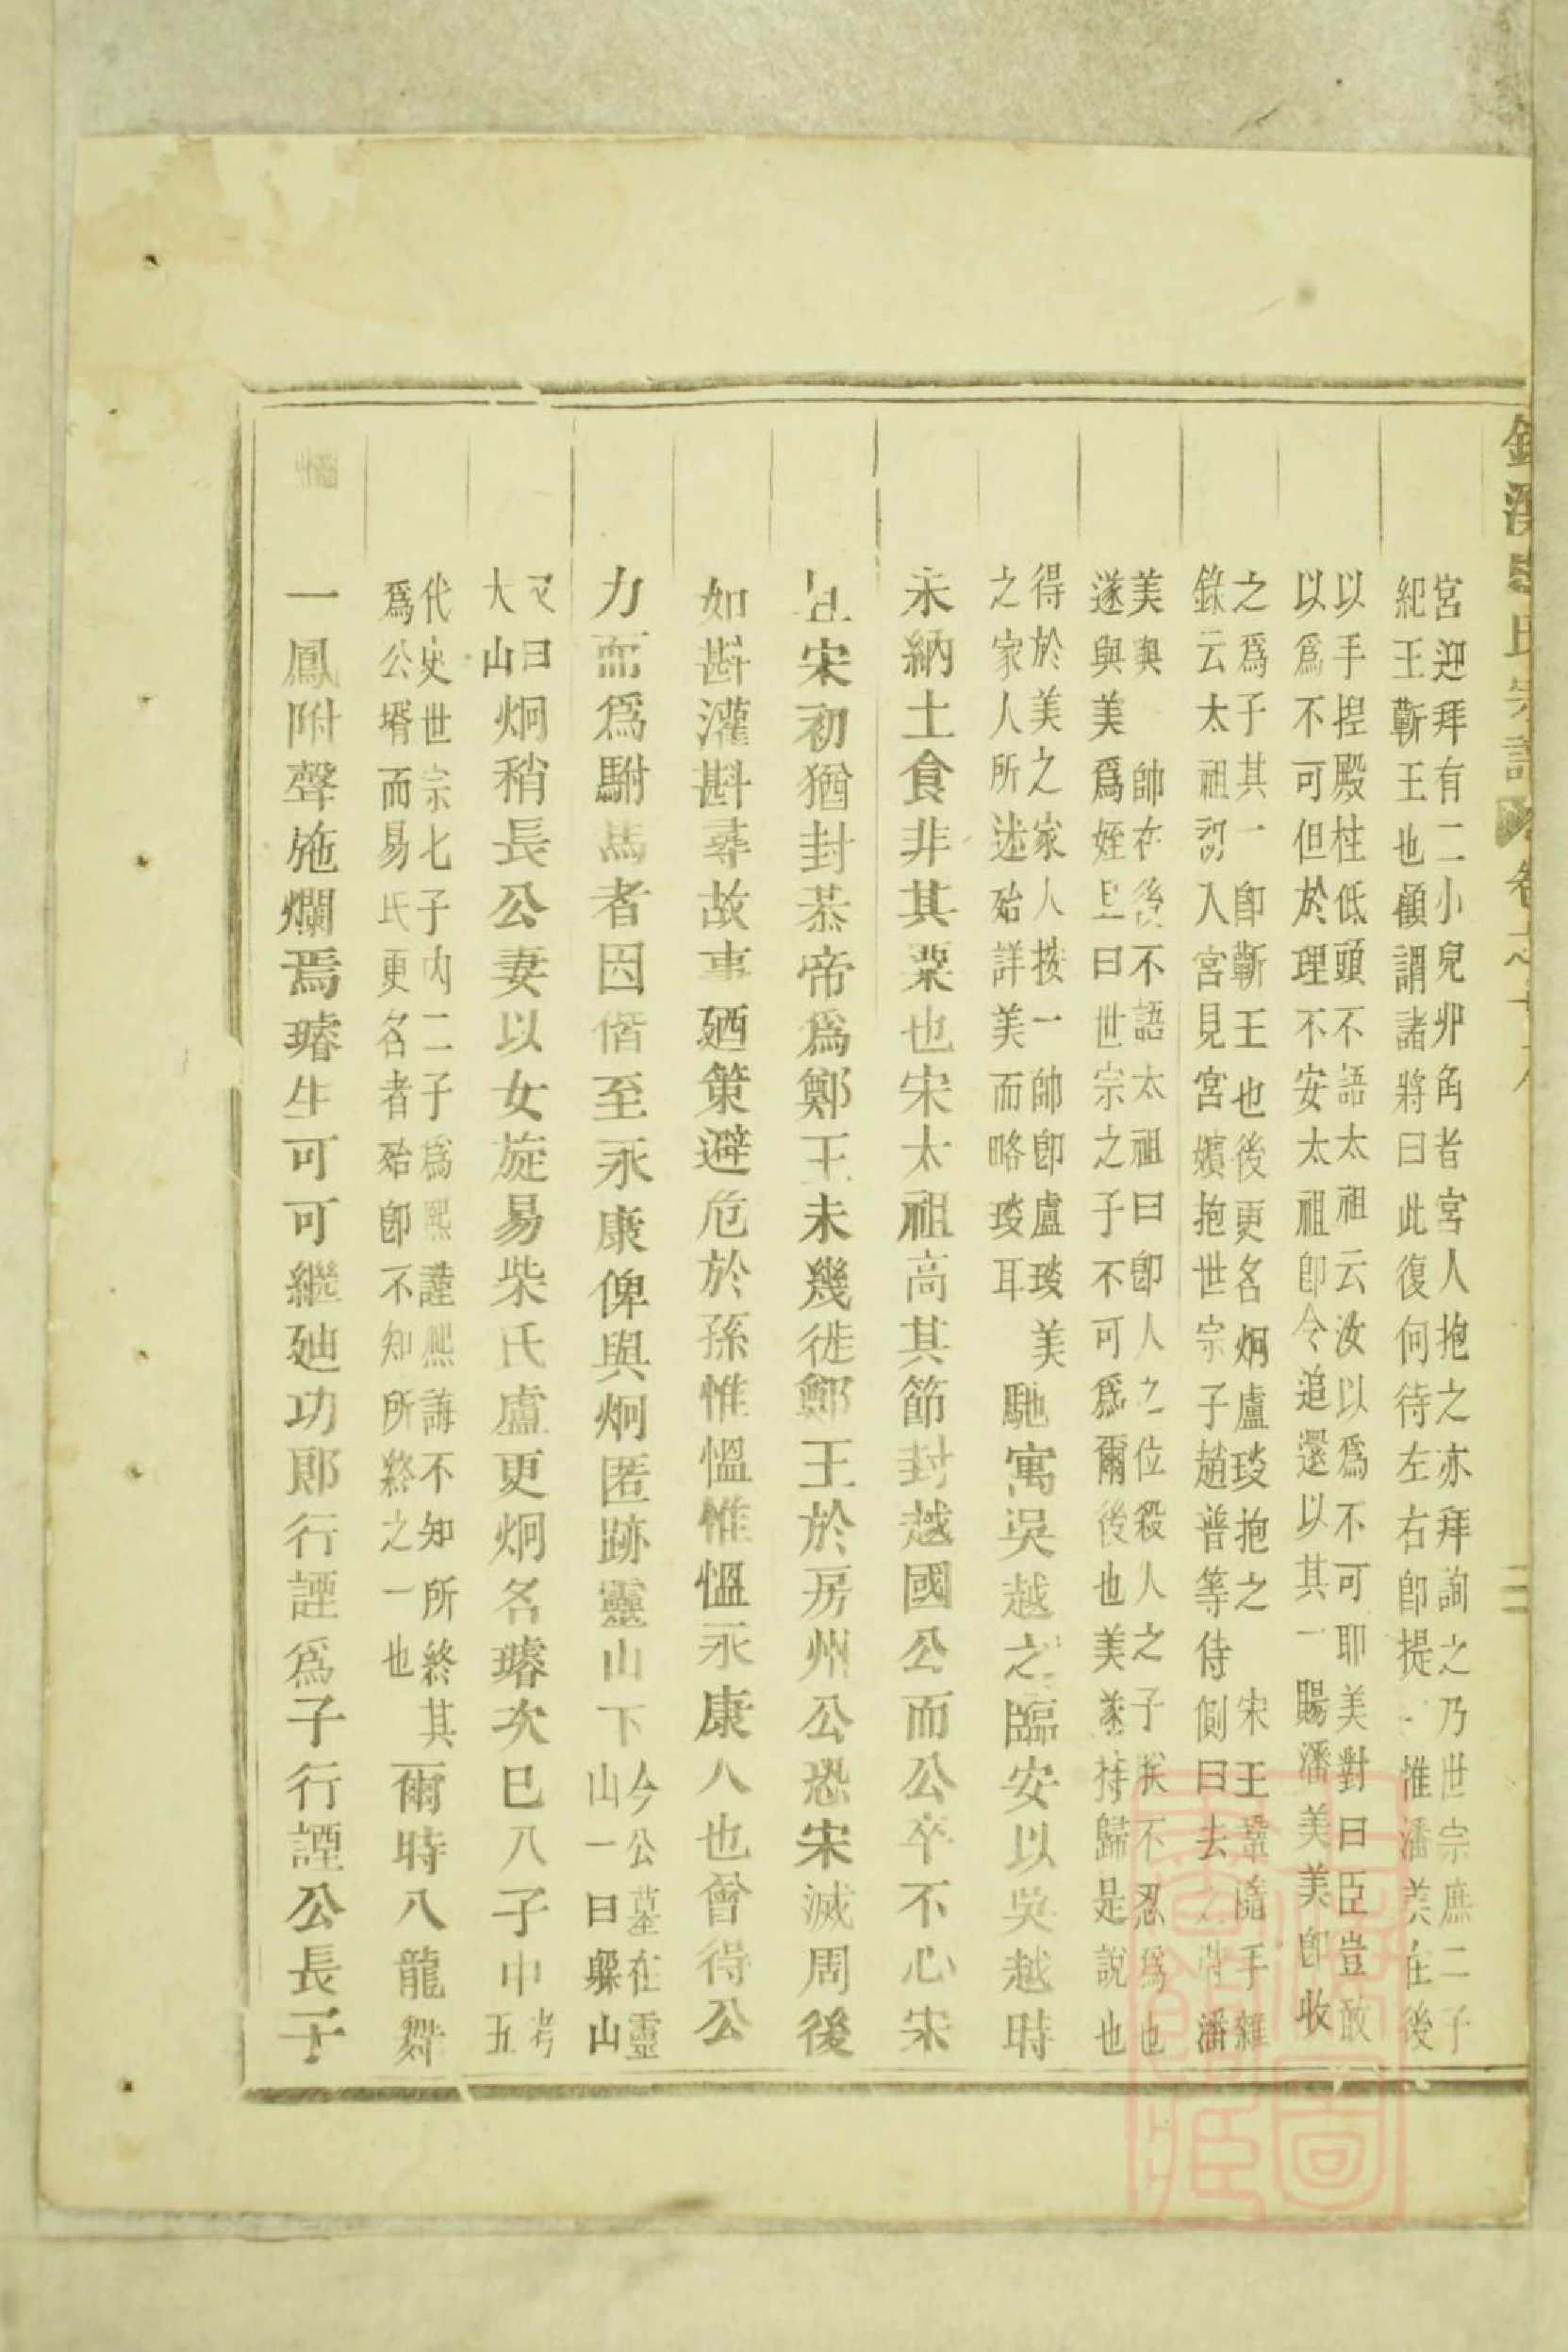 宮迎拜有二小兒丱角者宮人抱之亦拜詢之乃世宗庶二子
紀王蘄王也顧謂諸將曰此復何待左右即提一惟潘美在後
以手揑殿柱低頭不語太祖云汝以為不可耶美對曰臣豈敢
以為不可但於理不安太祖即令追還以其一賜潘美美即收
之為子其一即蘄王也後更名炯盧琰抱之 宋王鞏隨手雜
錄云太祖初入宮見宮嬪抱世宗子趙普等侍側曰去之時潘
美與 帥在後不語太祖曰即人之位殺人之子朕不忍為也
遂與美為姪且曰世宗之子不可為爾後也美遂持歸是說也
得於美之家人按一帥即盧琰美
之家人所述殆詳美而略琰耳
馳寓吳越之臨安以吳越時
未納土食非其粟也宋太祖高其節封越國公而公卒不心宋
且宋初猶封恭帝為鄭王未幾徙鄭王於房州公恐宋滅周後
如斟灌斟尋故事廼策避危於孫惟慍惟慍永康人也曾得公
力而為駙馬者因偕至永康俾與炯匿跡靈山下
今公墓在靈
山一曰躲山
又曰
大山
炯稍長公妻以女旋易柴氏盧更炯名璿次巳八子中
考
五
代史世宗七子內二子為熙謹熙誨不知所終其
為公壻而易氏更名者殆即不知所終之一也
爾時八龍舞
一鳳附聲施爛焉璿生可可可繼廸功郎行諲為子行諲公長子
卷之十八